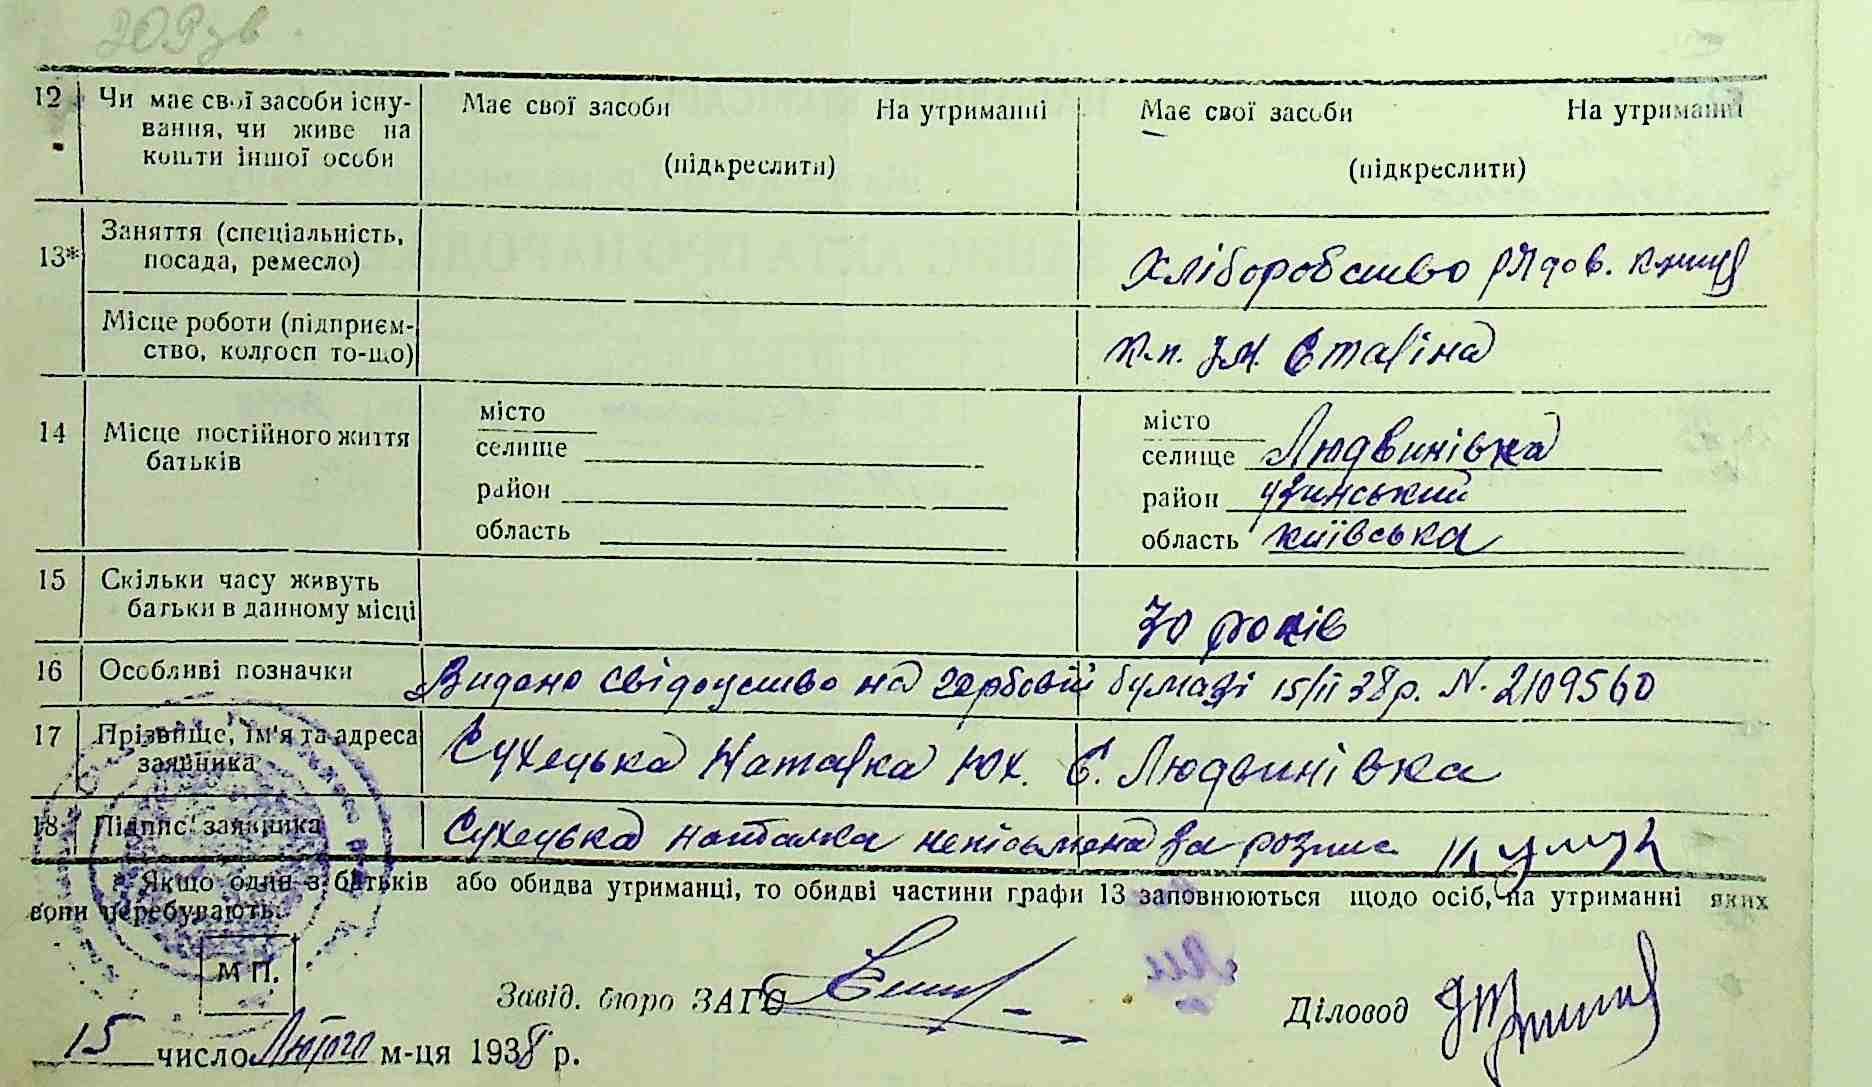 209 зв.
12 Чи має свої засоби існу- Має свої засоби На утриманні Має свої засоби На утриманні
вання, чи живе на
кошти іншої особи (підкреслити) (підкреслити)
Заняття (спеціальність,
13* посада, ремесло) Хліборобство рядов.
Місце роботи (підприєм-
ство, колгосп то-що) к.п. ім. Сталіна
14 Місце постійного життя місто місто
батьків селище селище Людвинівка
район район Узинський
область область київська
15 Скільки часу живуть
батьки в данному місці 30 років
16 Особливі позначки Видано свідоцтво на гербовій бумазі 15/II 38р. N. 2109560
17 Прізвище, ім'я та адреса Сухецька Наталка Юх. С. Людвинівка
заявника
18 Підпис заявника Сухецька наталка неписьмена за розпис
* Якщо один з батьків або обидва утриманці, то обидві частини графи 13 заповнюються щодо осіб, на утриманні яких
вони перебувають.
М П.
Завід. бюро ЗАГС Діловод
15 число Лютого м-ця 1938 р.